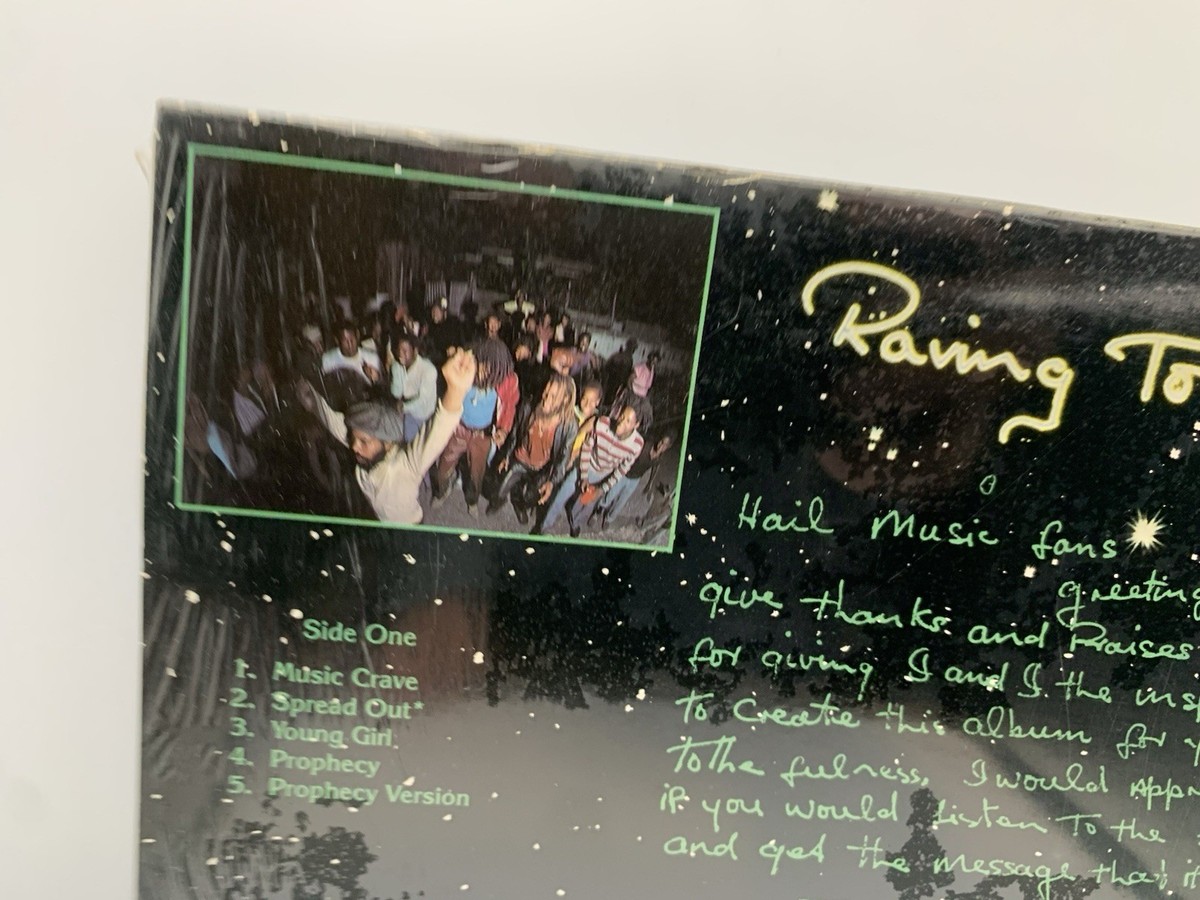 Raving To
Hail Music fans
greeting
give thanks and Praises
for giving I and I the insp
To Create this album for y
To the fulness, I would Appr
if you would Listen To the
and get the message that it
Side One
1. Music Crave
2. Spread Out*
3. Young Girl
4. Prophecy
5. Prophecy Version